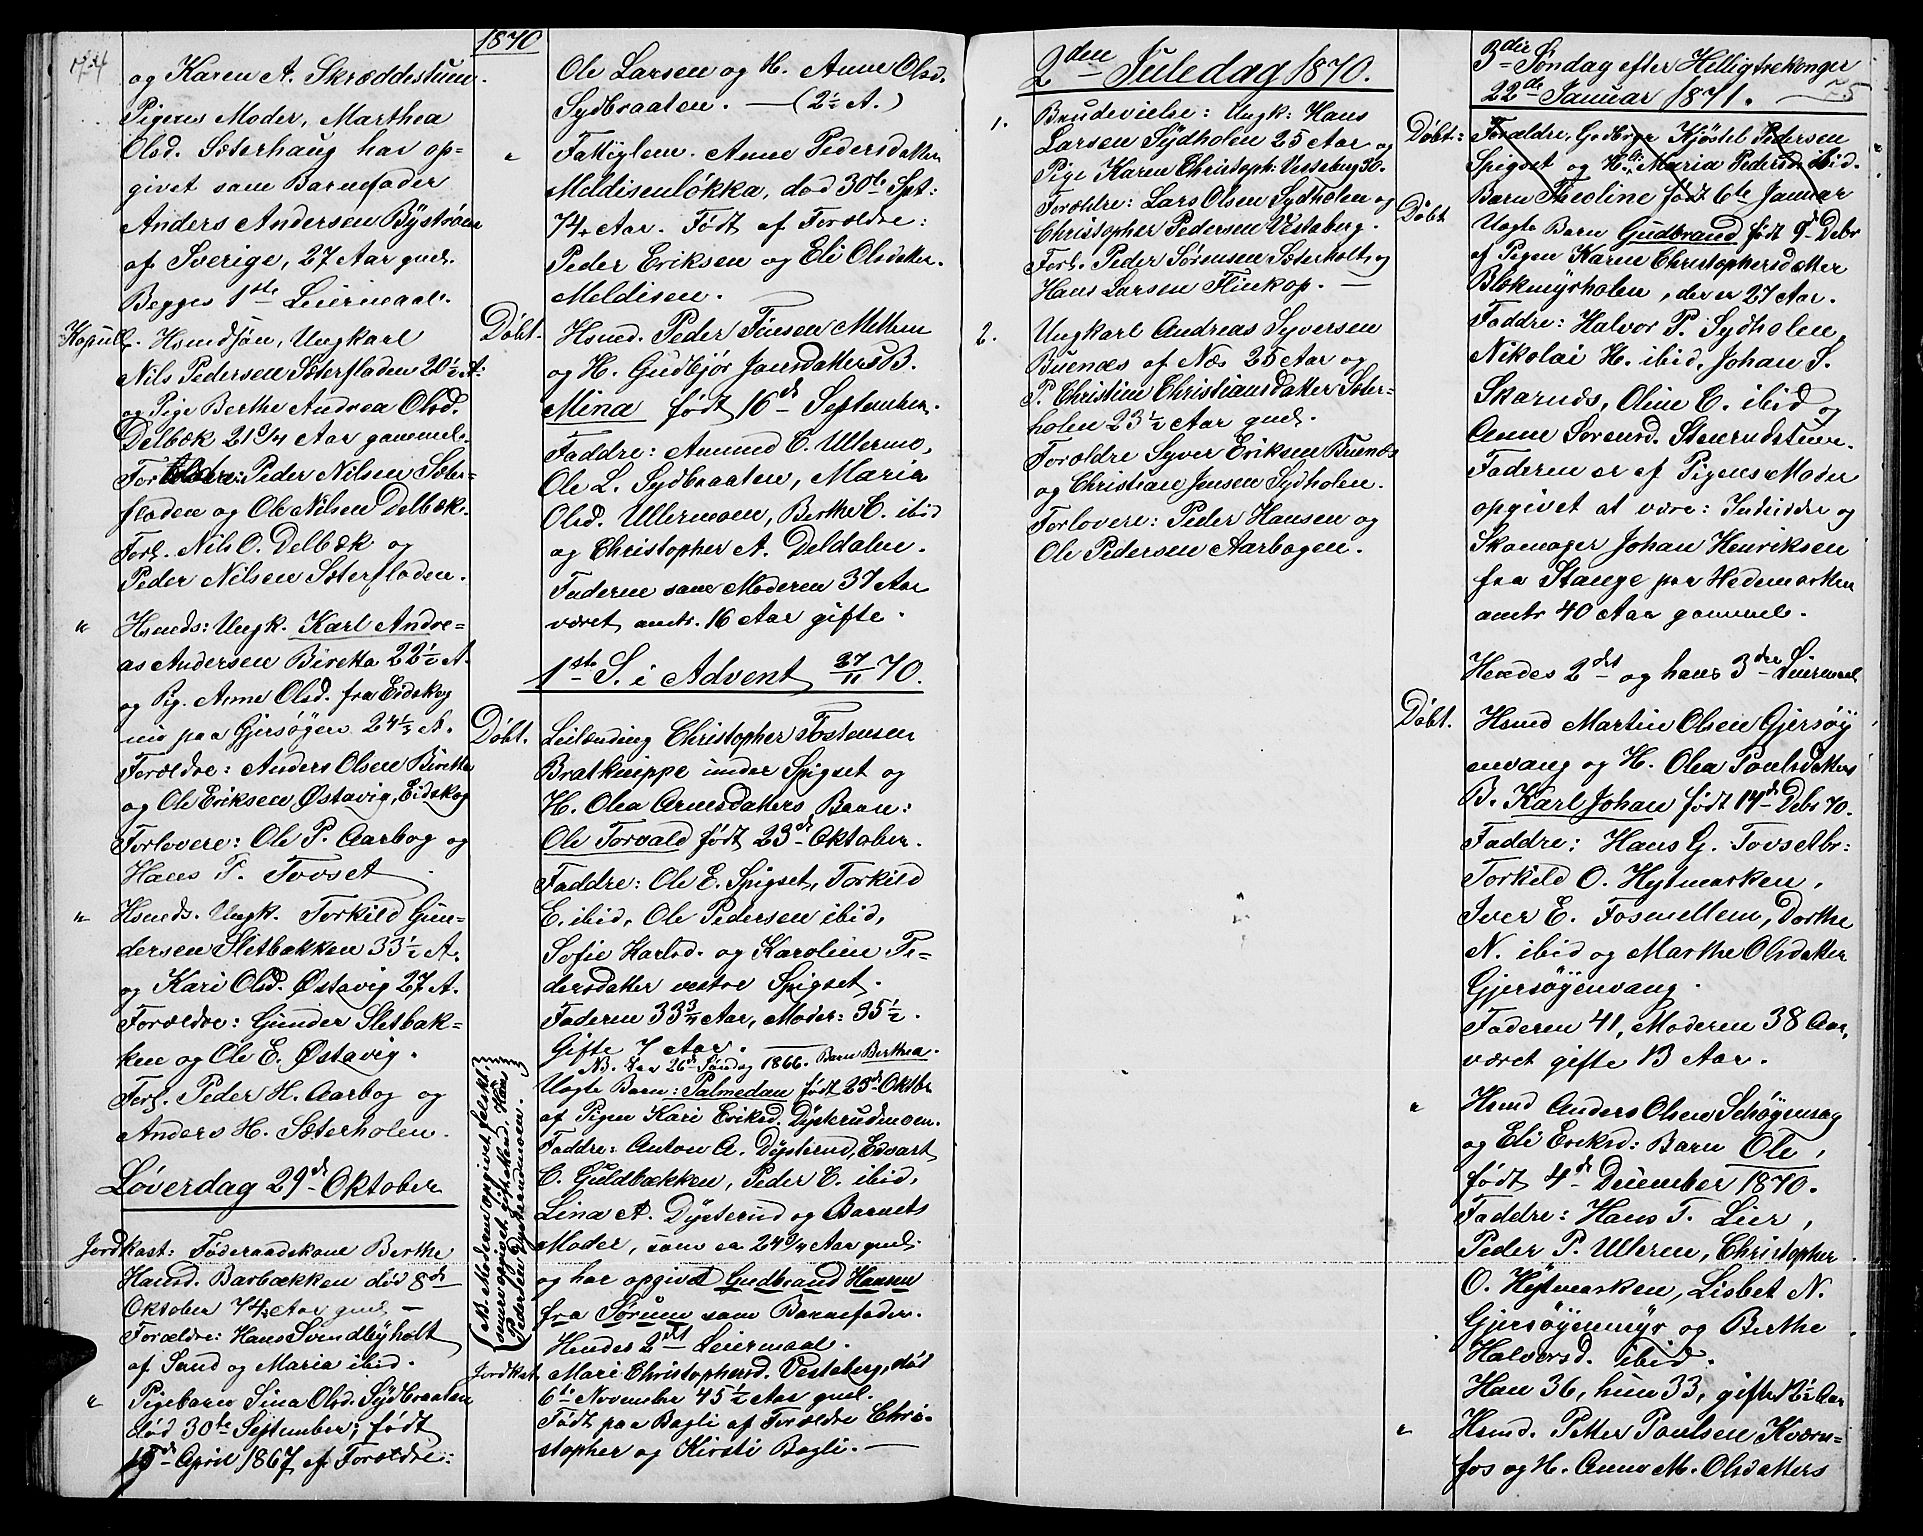 74
og Karen A. Skræddestuen.
Pigens Moder, Marthea
Olsd. Sæterhaug har op-
givet som Barnefader
Anders Andersen Byström
af Sverige, 27 Aar gml.
Begges 1ste Leiermaal.
Kopul. Hsmdsön, Ungkarl
Nils Pedersen Sæterfladen 20½ A:
og Pige Berthe Andrea Olsd.
Delbæk 21¾ Aar gammel.
Forældre: Peder Nilsen Sæter-
fladen og Ole Nilsen Delbæk.
Forl. Nils O. Delbæk og
Peder Nilsen Sæterfladen.
" Hsmds: Ungk. Karl Andre-
as Andersen Biretta 22½ A.
og Pig. Anne Olsd. fra Eidskog
nu paa Gjersøgen 24½ A.
Forældre: Anders Olsen Biretta
og Ole Eriksen Østavig, Eidskog
Forlovere: Ole P. Aarbog og
Hans P. Tovset
" Hsmds. Ungk. Torkild Gun-
dersen Sletbakken 33½ A.
og Kari Olsd. Østavig 27 A.
Forældre: Gunder Sletbak-
ken og Ole E. Østavig.
Forl. Peder H. Aarbog og
Anders H. Sæterholen.
Løverdag 29de Oktober
Jordkast: Föderaadskone Berthe
Hansd. Barbækken död 8de
Oktober 74 Aar gml. —
Forældre: Hans Svendbyholt
af Sand og Maria ibid.
" Pigebarn Sina Olsd. Sydbraaten
död 30te September; født
15de April 1867 af Forældre:
1870
Ole Larsen og H. Anne Olsd.
Sydbraaten. — (2½ A.)
" Fattiglem. Anne Pedersdatter
Meldisenløkka, død 30te Spt:
74 Aar. Født af Forældre:
Peder Eriksen og Eli Olsdatter
Meldisen.
Döbt. Hsmd. Peder Finsen Mellem
og H. Gudbjör Jonsdatters B.
Mina født 16de September.
Faddre: Amund C. Ullermo,
Ole L. Sydbraaten, Maria
Olsd. Ullermoen, Berthe C. ibid
og Christopher A. Deldalen.
Faderen som Moderen 37 Aar
været omtr. 16 Aar gifte.
1ste S. i Advent 27/11 70.
Döbt. Leilænding Christopher Tostensen
Bratkneippe under Spigset og
H. Olea Arnesdatters Barn:
Ole Torvald født 23de Oktober.
Faddre: Ole E. Spigset, Torkild
E. ibid, Ole Pedersen ibid,
Sofie Karlsd. og Karoline Pe-
dersdatter vestre Spigset.
Faderen 33¾ Aar, Moder: 35½.
Gifte 7 Aar.
NB. Før 26de Søndag 1866. Barn Berthea.
Uægte Barn: Palmedan født 25de Oktbr
af Pigen Kari Eriksd. Dysterudmoen.
Faddre: Anton A. Dysterud, Edvart
C. Guldbækken, Peder C. ibid,
Lina A. Dysterud og Barnets
Moder, som er 24¾ Aar gml.
og har opgivet Gudbrand Hansen
fra Sørum som Barnefader.
Hendes 2det Leiermaal.
(NB. Moderen opgivet falskt,
senere opgivet gift Mand, Hans
Pedersen Dysterudmoen.
Jordkast. Mari Christophersd. Vestaberg, død
6te November 45½ Aar gml.
Født paa Bagli af Forældre Chri-
stopher og Kirsti Bagli. —
2den Juledag 1870.
1. Brudevielse: Ungk: Hans
Larsen Sydholen 25 Aar og
Pige Karen Christoph: Vestaberg 30.
Forældre: Lars Olsen Sydholen og
Christopher Pedersen Vestaberg.
Forl. Peder Sørensen Sæterholt og
Hans Larsen Flinkop. —
2. Ungkarl Andreas Syversen
Buenæs af Næs 25 Aar og
P. Christine Christiansdatter Sæter-
holen 23½ Aar gml.
Forældre Syver Eriksen Buenæs
og Christian Jensen Sydholen.
Forlovere: Peder Hansen og
Ole Pedersen Aarbogen.
3die Søndag efter Helligtrekonger
22de Januar 1871. — 75
Döbt: Forældre, Godbruger Kjöstel Pedersen
Spigset og H. Maria Pedersd. ibid.
Barn Theoline født 6te Januar
Döbt Uægte Barn Gudbrand født 9de Debr
af Pigen Karen Christophersdatter
Blokmyrholen, der er 27 Aar.
Faddre: Halvor P. Sydholen,
Nikolai H. ibid, Johan S.
Skarnds, Oline C. ibid og
Anne Sorensd. Stenrudstuen.
Faderen er af Pigens Moder
opgivet at være: Inderste og
Skomager Johan Henriksen
fra Stange paa Hedemarken
omtr 40 Aar gammel.
Hendes 2det og hans 3die Leiermaal
Döbt. Hsmd Martin Olsen Gjersøy
envang og H. Olea Poulsdatters
B. Karl Johan født 14de Debr 70.
Faddre: Hans G. Tovsetbr:
Torkild O. Hytmarken,
Iver E. Fosmellem, Dorthe
N. ibid og Marthe Olsdatter
Gjersøgenvang.
Faderen 41, Moderen 38 Aar,
været gifte 13 Aar.
" Hsmd Anders Olsen Schøgensag
og Eli Eriksd: Barn Ole,
født 4de December 1870.
Faddre: Hans T. Lier,
Peder P. Ulleren, Christopher
O. Hytmarken, Lisbet N.
Gjersøyenmyr og Berthe
Halvorsd. ibid.
Han 36, hun 33, gifte 12½ Aar
" Hsmd. Petter Poulsen Kværn-
fos og H. Anne M. Olsdatters